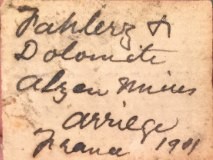 Fahlerz &
Dolomite
Alzen mines
Arriege
France 1901